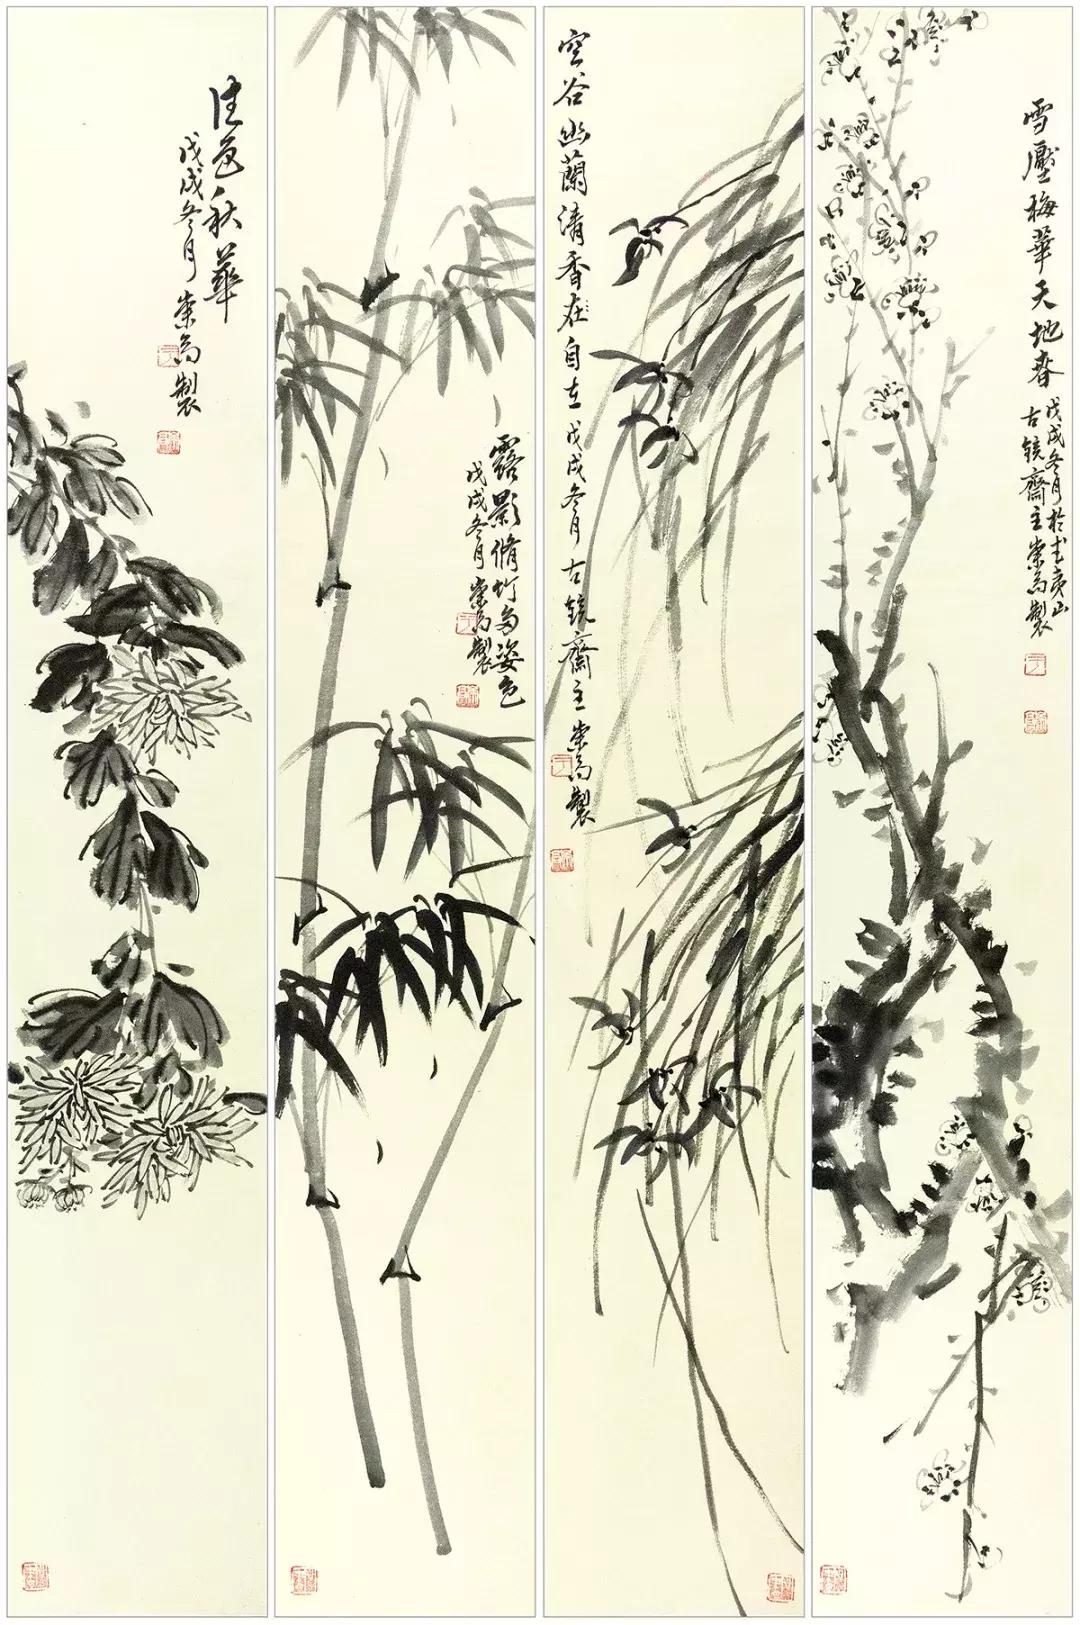 雪壓梅華天地春
戊戌冬月於武夷山
古鏡齋主崇為製
空谷幽蘭清香在自在戊戌冬月古鏡齋主崇為製
露影脩竹多姿色
戊戌冬月崇為製
佳色秋華
戊戌冬月崇為製